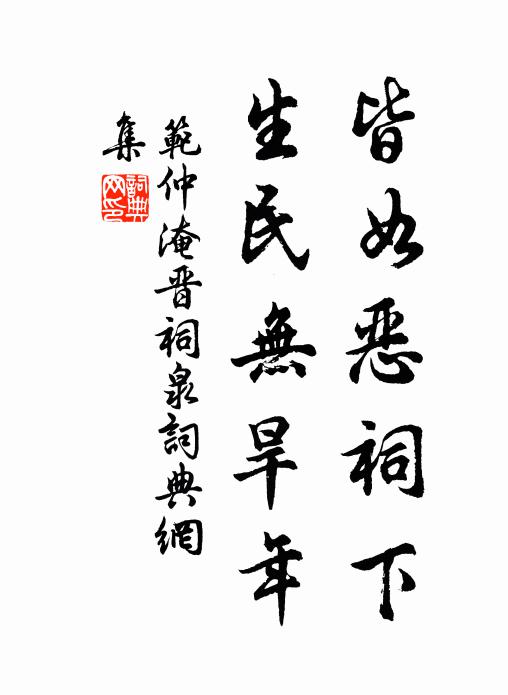 皆如悪祠下
生民無旱年
範仲淹晋祠泉詞典網
集
詞典
网印